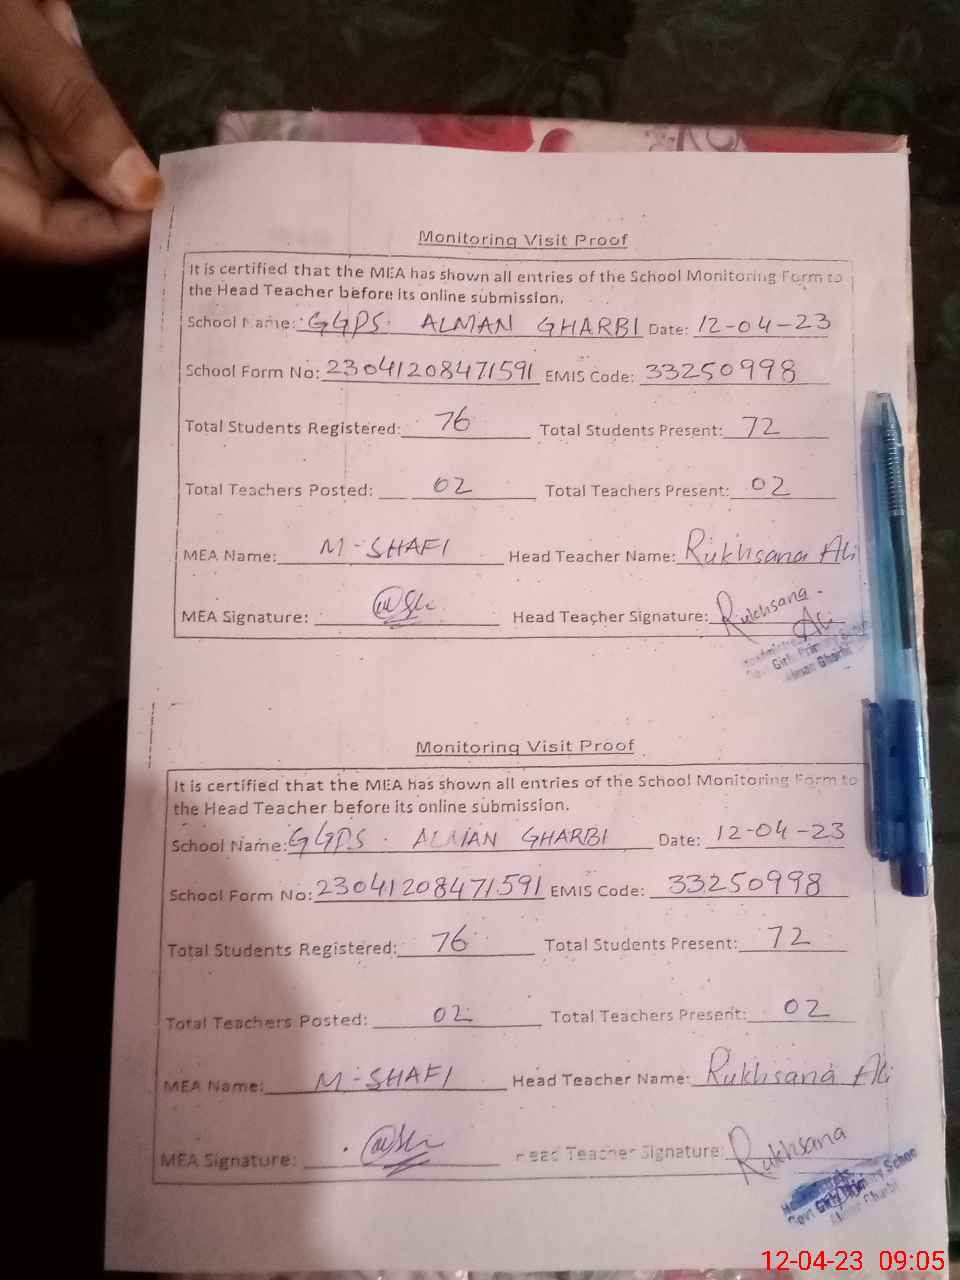 Monitoring Visit Proof
It is certified that the MEA has shown all entries of the School Monitoring Form to
the Head Teacher before its online submission.
School Name: GGPS. ALMAN GHARBI Date: 12-04-23
School Form No: 23041208471591 EMIS Code: 33250998
Total Students Registered: 76 Total Students Present: 72
Total Teachers Posted: 02 Total Teachers Present: 02
MEA Name: M-SHAFI Head Teacher Name: Rukhsana Ali
MEA Signature: Head Teacher Signature: Rukhsana.
Ali
Girls Primary School
Alman Gharbi
Monitoring Visit Proof
It is certified that the MEA has shown all entries of the School Monitoring Form to
the Head Teacher before its online submission.
School Name: GGPS. ALMAN GHARBI Date: 12-04-23
School Form No: 23041208471591 EMIS Code: 33250998
Total Students Registered: 76 Total Students Present: 72
Total Teachers Posted: 02 Total Teachers Present: 02
MEA Name: M-SHAFI Head Teacher Name: Rukhsana Ali
MEA Signature: Head Teacher Signature: Rukhsana
Govt Girls Primary School
Alman Gharbi
12-04-23 09:05